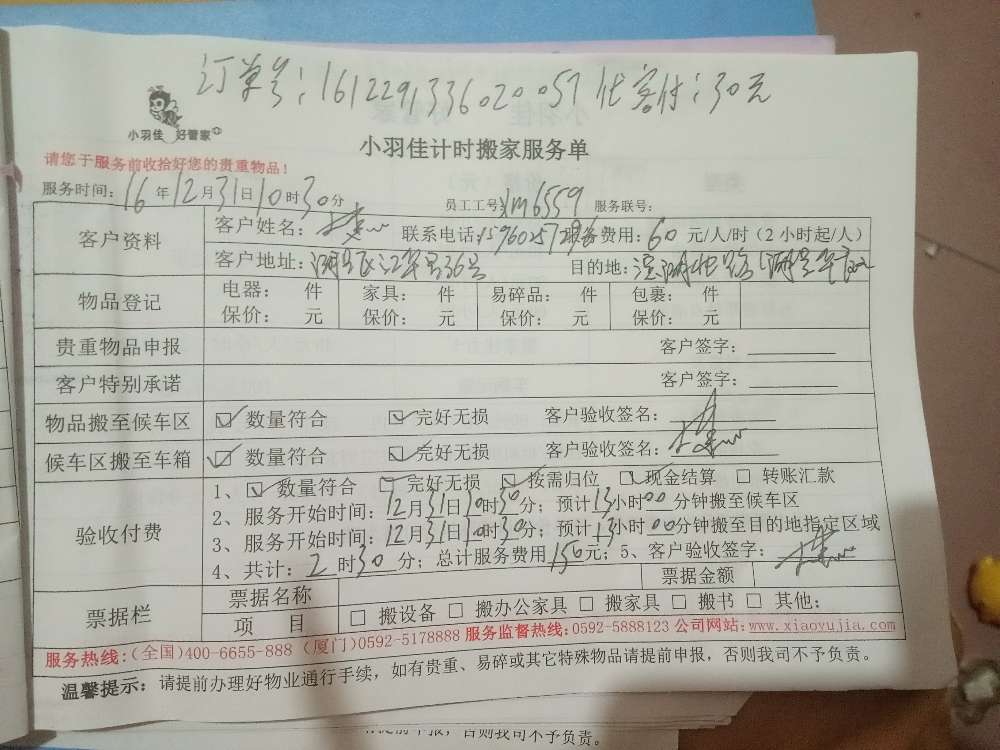 订单号：1612291336020057代客付：30元
小羽佳 好管家
小羽佳计时搬家服务单
请您于服务前收拾好您的贵重物品！
服务时间：16年12月31日10时30分 员工工号：xm6559 服务联号：
客户资料 客户姓名： 联系电话： 服务费用：60元/人/时（2小时起/人）
客户地址： 目的地：
物品登记 电器： 件 家具： 件 易碎品： 件 包裹： 件
保价： 元 保价： 元 保价： 元 保价： 元
贵重物品申报 客户签字：
客户特别承诺 客户签字：
物品搬至候车区 ☑ 数量符合 ☑ 完好无损 客户验收签名：
候车区搬至车箱 ☑ 数量符合 ☑ 完好无损 客户验收签名：
验收付费 1、☑ 数量符合 ☑ 完好无损 ☑ 按需归位 ☑ 现金结算 □ 转账汇款
2、服务开始时间：12月31日10时30分；预计13小时00分钟搬至候车区
3、服务开始时间：12月31日10时30分；预计13小时00分钟搬至目的地指定区域
4、共计：2时30分；总计服务费用150元；5、客户验收签字：
票据栏 票据名称 票据金额
项 目 □ 搬设备 □ 搬办公家具 □ 搬家具 □ 搬书 □ 其他：
服务热线：(全国)400-6655-888（厦门)0592-5178888 服务监督热线：0592-5888123 公司网站：www.xiaoyujia.com
温馨提示：请提前办理好物业通行手续，如有贵重、易碎或其它特殊物品请提前申报，否则我司不予负责。
否则我司不予负责。